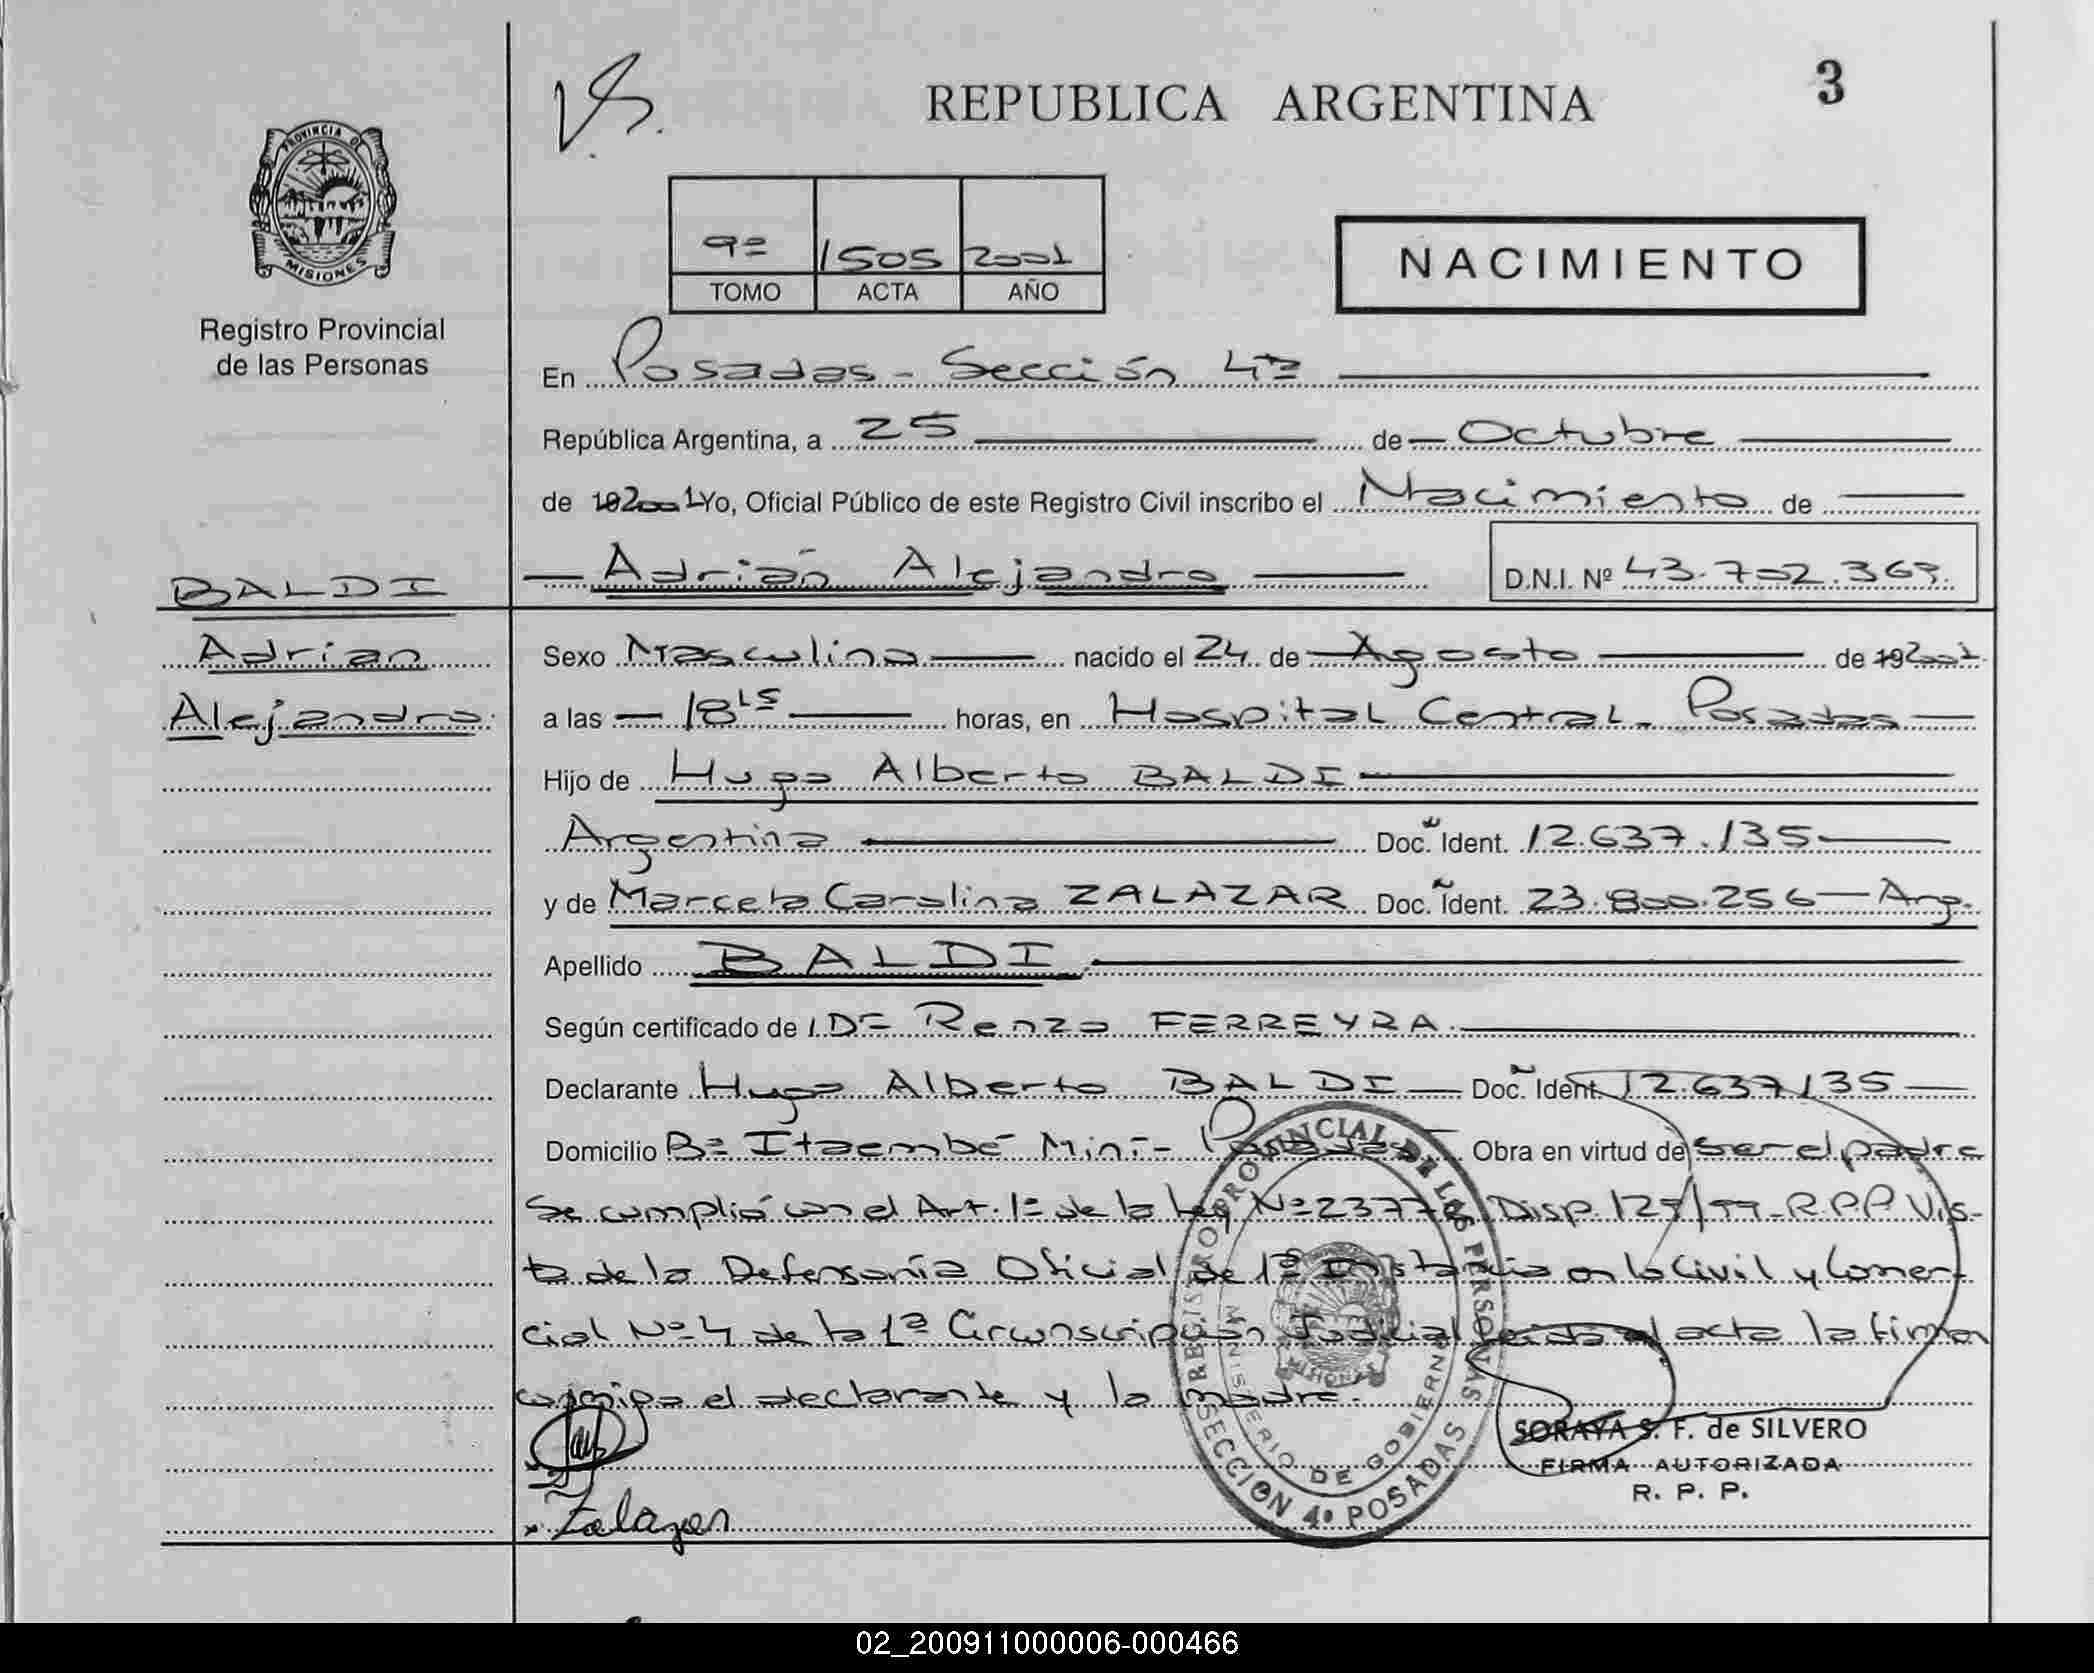 3
REPUBLICA ARGENTINA
PROVINCIA DE
MISIONES
Registro Provincial
de las Personas
9º 1505 2001
TOMO ACTA AÑO
NACIMIENTO
En Posadas - Sección 4ª
República Argentina, a 25 de Octubre
de 192001 Yo, Oficial Público de este Registro Civil inscribo el Nacimiento de
BALDI
Adrian
Alejandro
Adrián Alejandro D.N.I. Nº 43.702.369.
Sexo Masculino nacido el 24 de Agosto de 192001
a las 18 hs horas, en Hospital Central. Posadas
Hijo de Hugo Alberto BALDI
Argentina Doc. Ident. 12.637.135
y de Marcela Carolina ZALAZAR Doc. Ident. 23.800.256 - Arg.
Apellido BALDI
Según certificado de Dr Renzo FERREYRA.
Declarante Hugo Alberto BALDI Doc. Ident. 12.637.135
Domicilio Bº Itaembé Miní - Posadas Obra en virtud de ser el padre
Se cumplió con el Art. 1º de la Ley Nº 23776 Disp. /99 - R.P.P. Vis-
ta de la Defensoría Oficial de 1ª Instancia en lo Civil y Comer-
cial Nº 4 de la 1ª Circunscripción Judicial Leida el acta la firma
conmigo el declarante y la madre.
REGISTRO PROVINCIAL DE LAS PERSONAS
MINISTERIO DE GOBIERNO
MISIONES
SECCION 4º POSADAS
SORAYA S. F. de SILVERO
FIRMA AUTORIZADA
R. P. P.
Zalazar
02_200911000006-000466